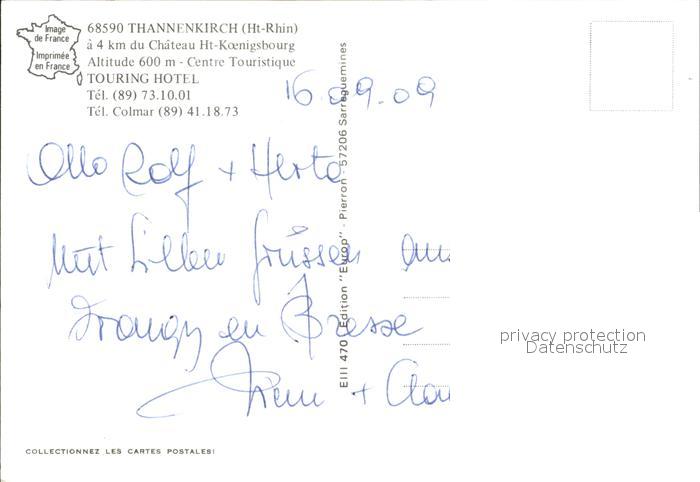 Image
de France
Imprimée
en France
68590 THANNENKIRCH (Ht-Rhin)
à 4 km du Château Ht-Kœnigsbourg
Altitude 600 m - Centre Touristique
TOURING HOTEL
Tél. (89) 73.10.01
Tél. Colmar (89) 41.18.73
16.09.09
Allo Rolf + Herta
Mit lieben Grüssen aus
Frangy en Bresse
+
EIII 470 Edition "Europ" - Pierron - 57206 Sarreguemines
privacy protection
Datenschutz
COLLECTIONNEZ LES CARTES POSTALES!